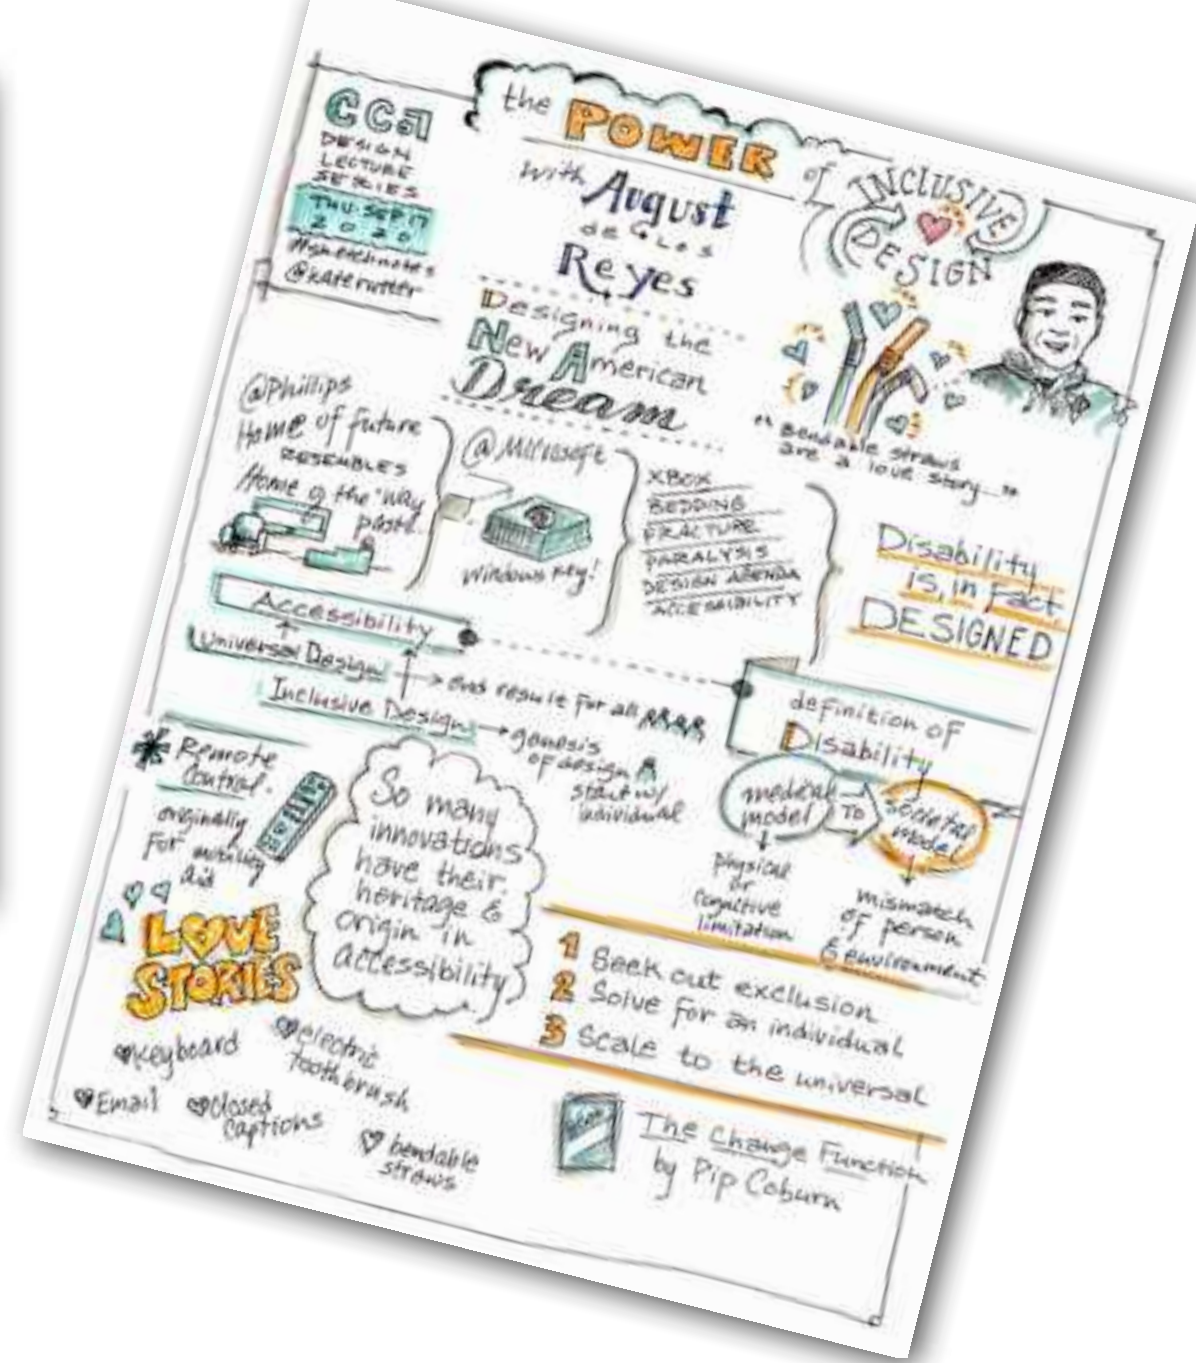 cca
DESIGN
LECTURE
SERIES
THU. SEP 17
2020
#sketchnotes
@katerutter
the POWER of
INCLUSIVE
DESIGN
with August
de los
Reyes
Designing the
New American
Dream
"Bendable straws
are a love story..."
@Phillips
Home of future
RESEMBLES
Home of the
past.
@Microsoft
Windows key!
XBOX
BEDDING
FRACTURE
PARALYSIS
DESIGN AGENDA
ACCESSIBILITY
Disability
is, in Fact
DESIGNED
Accessibility
Universal Design
end result for all
Inclusive Design
genesis
of design
start w/
individual
definition of
Disability
medical
model
TO
societal
model
physical
or
cognitive
limitation
mismatch
of person
& environment
Remote
Control.
originally
For mobility
aid
So many
innovations
have their
heritage &
origin in
accessibility
LOVE
STORIES
keyboard
electric
toothbrush
Email
closed
captions
bendable
straws
1 Seek out exclusion
2 Solve for an individual
3 Scale to the universal
The Change Function
by Pip Coburn